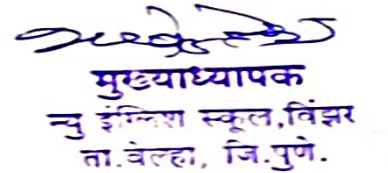 मुख्याध्यापक
न्यु इंग्लिश स्कूल,विंझर
ता.वेल्हा, जि.पुणे.